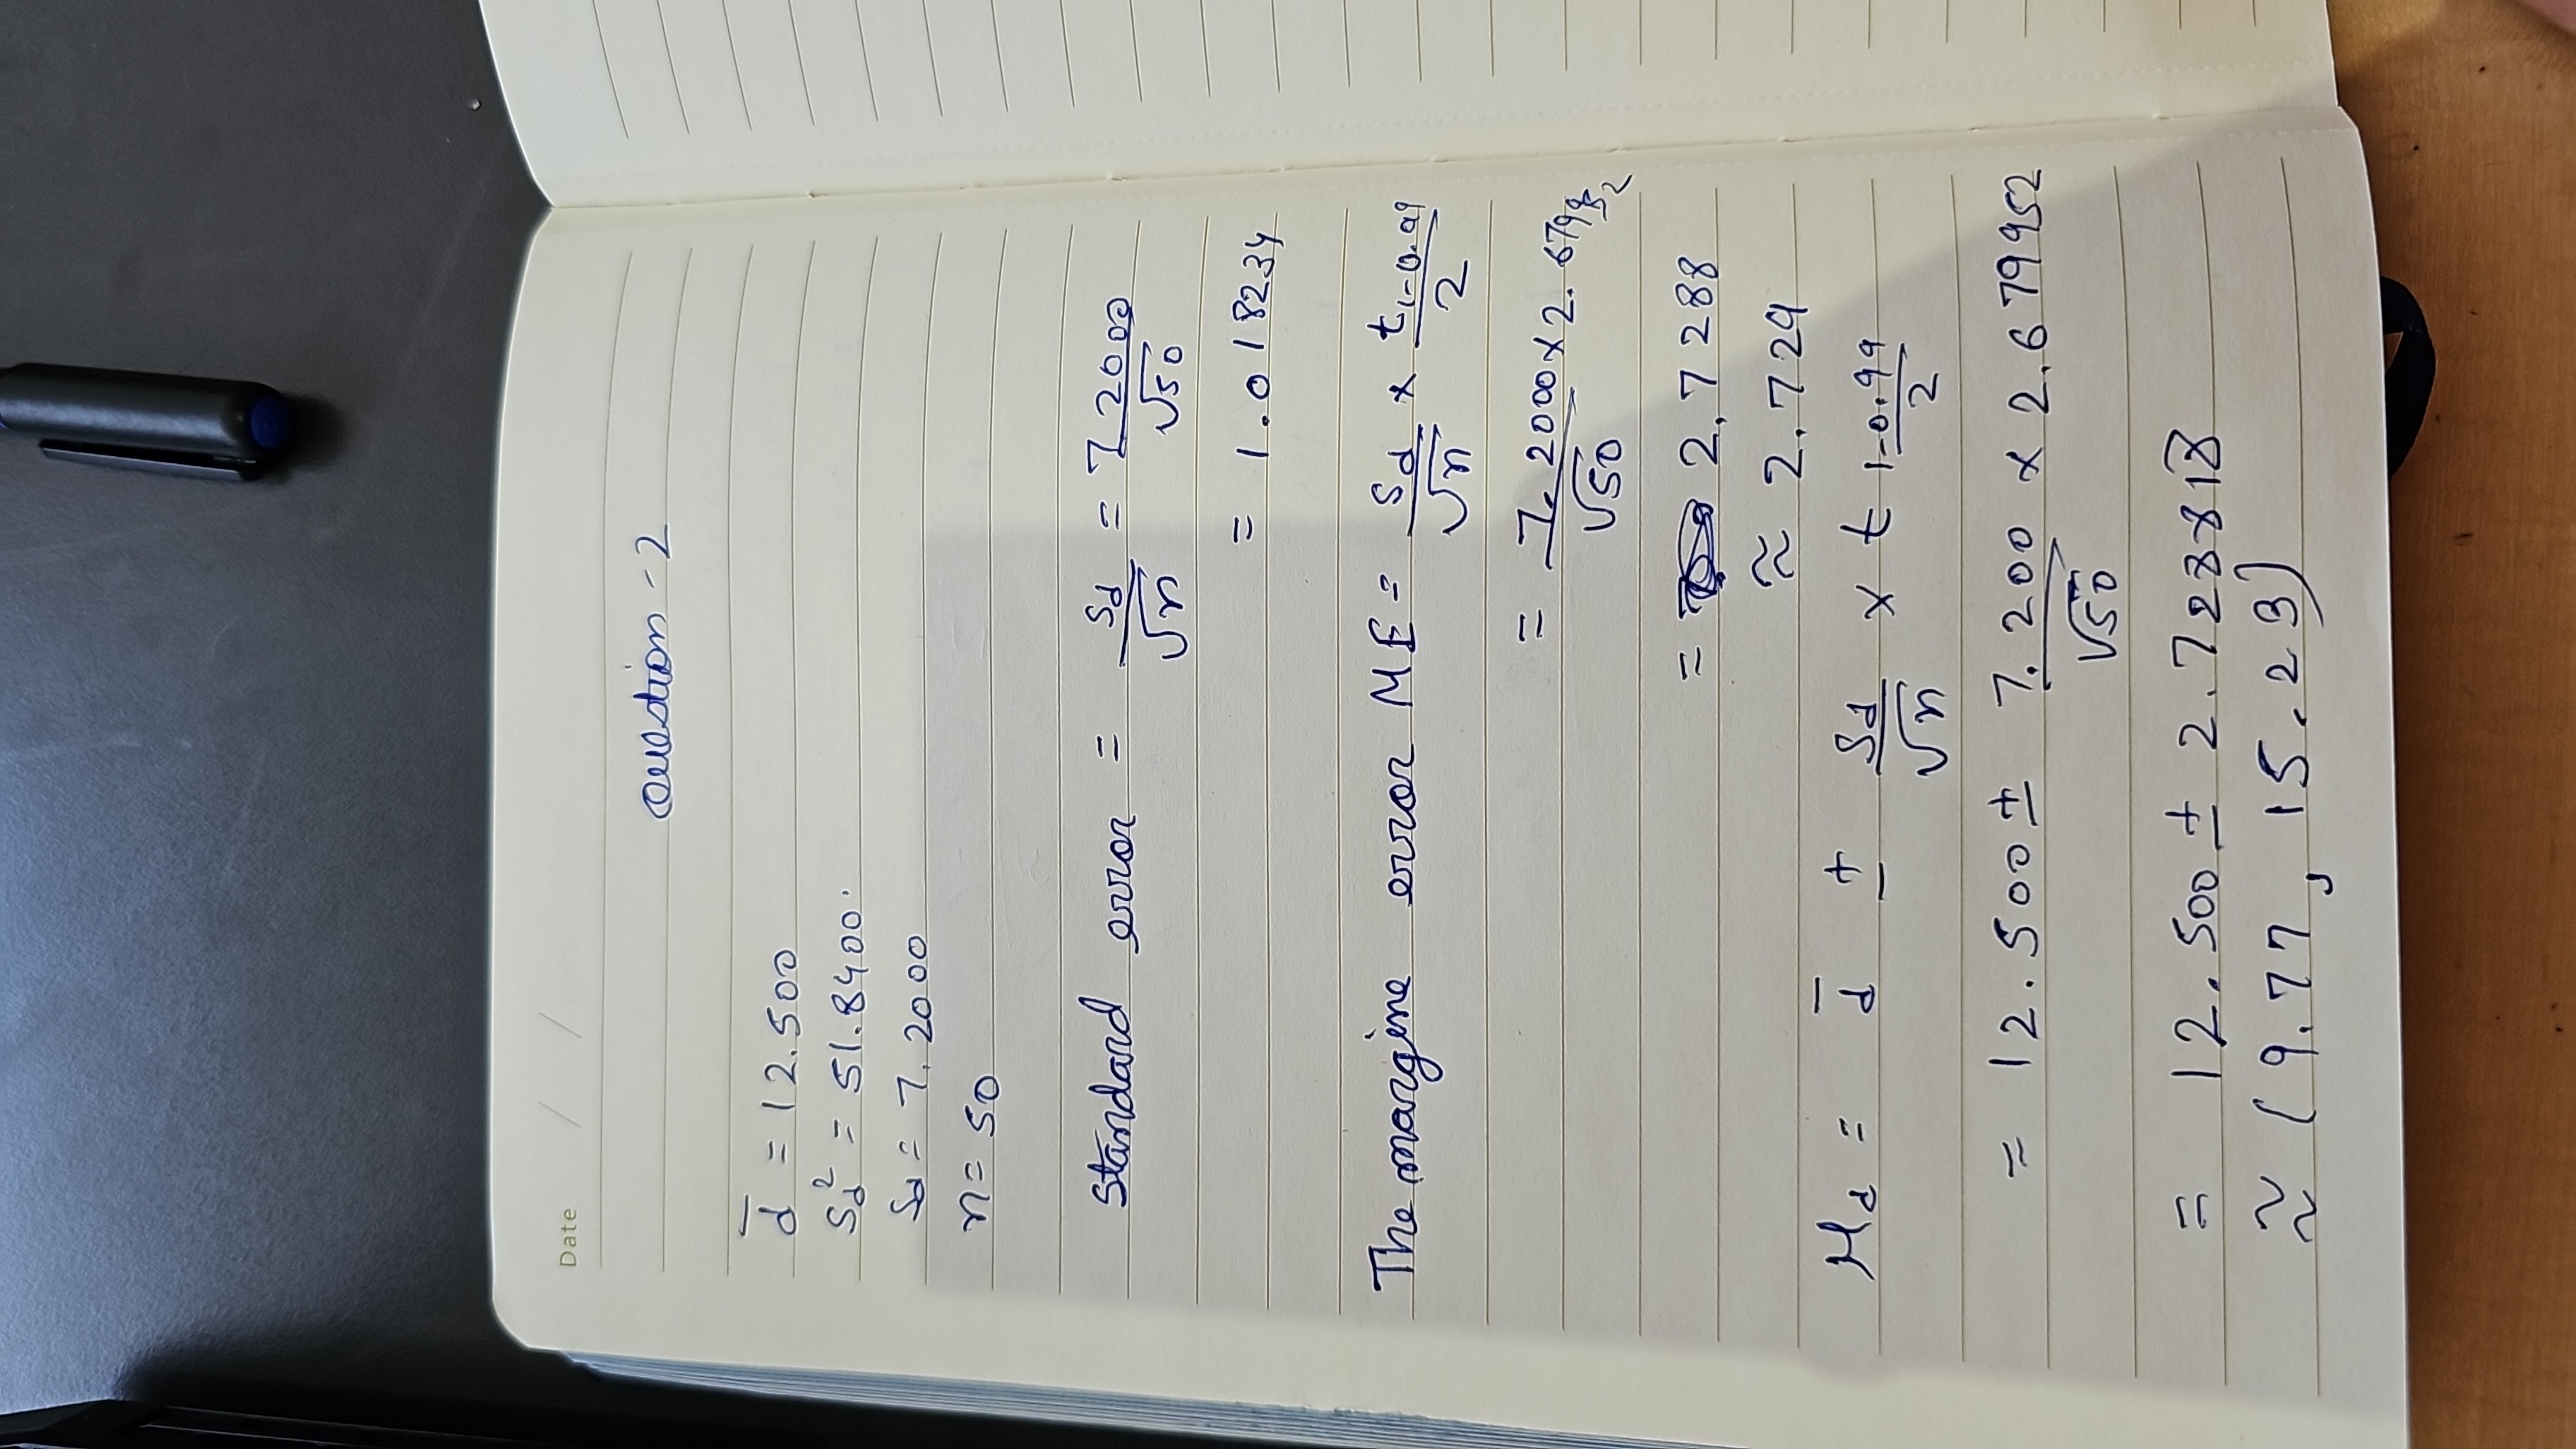 Date / /
Question - 2
d̅ = 12.500
Sd² = 51.8400.
Sd = 7.2000
n = 50
Standard error = Sd/√n = 7.2000/√50
= 1.018234
The margine error ME = Sd/√n × t1-0.99/2
= 7.2000/√50 × 2.679952
= 2.7288
≈ 2.729
μd = d̅ ± Sd/√n × t 1-0.99/2
= 12.500 ± 7.200/√50 × 2.679952
= 12.500 ± 2.728818
≈ (9.77, 15.23)